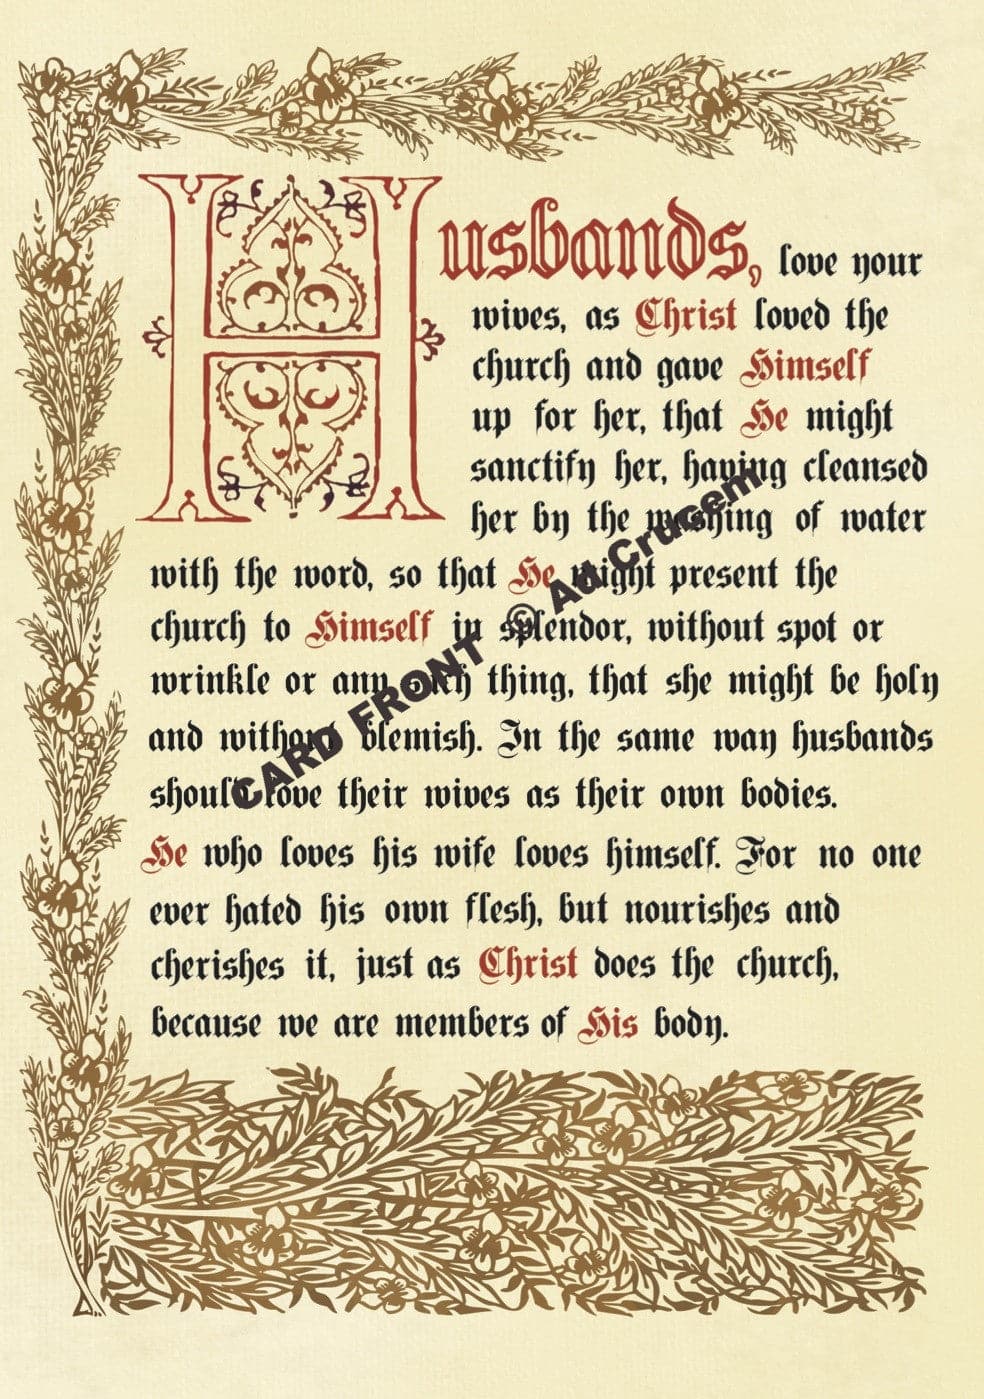 Husbands, love your
wives, as Christ loved the
church and gave Himself
up for her, that He might
sanctify her, having cleansed
her by the washing of water
with the word, so that He might present the
church to Himself in splendor, without spot or
wrinkle or any such thing, that she might be holy
and without blemish. In the same way husbands
should love their wives as their own bodies.
He who loves his wife loves himself. For no one
ever hated his own flesh, but nourishes and
cherishes it, just as Christ does the church,
because we are members of His body.
CARD FRONT © Ad Crucem